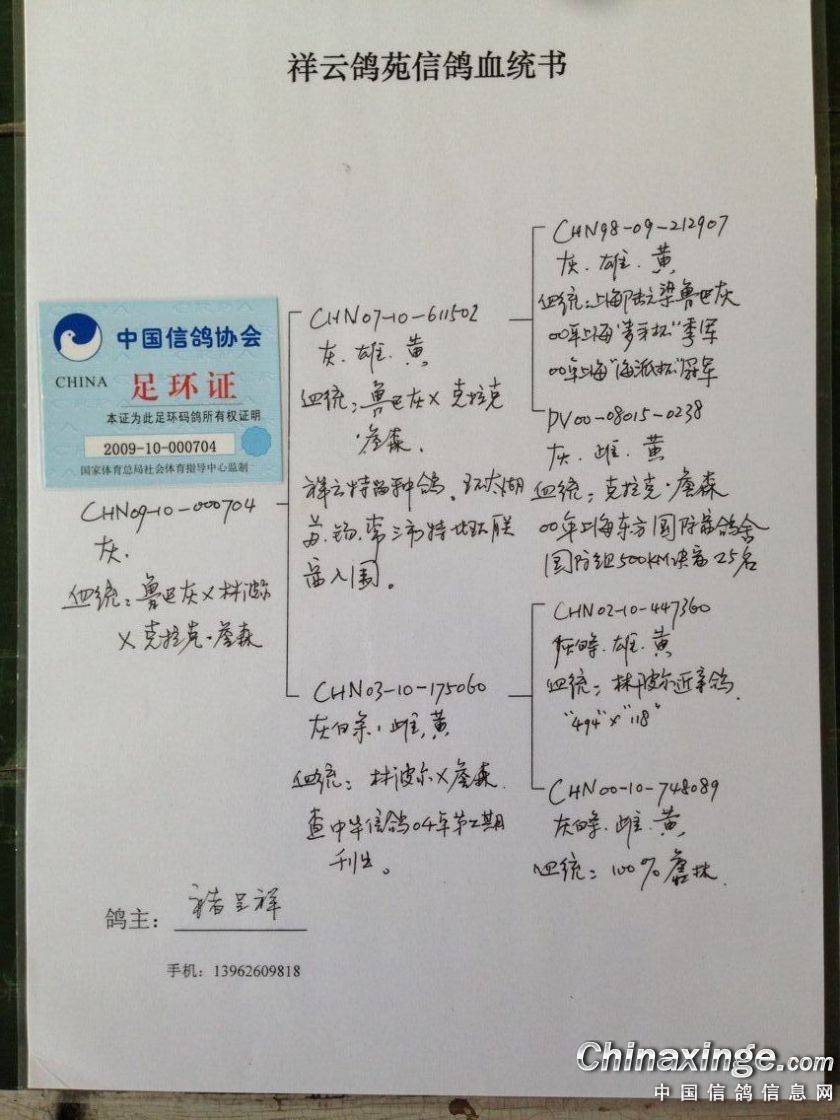 祥云鸽苑信鸽血统书
中国信鸽协会
CHINA 足环证
本证为此足环码鸽所有权证明
2009-10-000704
国家体育总局社会体育指导中心监制
CHN09-10-000704
灰.
血统:鲁巴灰X林波尔
X克拉克·詹森
CHN07-10-611502
灰.雄.黄
血统:鲁巴灰X克拉克
·詹森.
祥云特留种鸽.环太湖
苏.锡.常三市特比环联
赛入围。
CHN03-10-175060
灰白条,雌,黄
血统:林波尔X詹森.
查中华信鸽04年第二期
刊出。
CHN98-09-212907
灰.雄.黄
血统:上海陆立梁鲁巴灰
00年上海"杯"季军
00年上海"海派杯"冠军
DV00-08015-0238
灰.雌.黄
血统:克拉克·詹森
00年上海东方国际赛鸽会
国际组500KM决赛25名
CHN02-10-447360
灰白条.雄.黄
血统:林波尔近亲鸽.
"494"x"118"
CHN00-10-748089
灰白条.雌.黄.
血统:100%詹森.
鸽主:褚呈祥
手机:13962609818
Chinaxinge.com
中国信鸽信息网